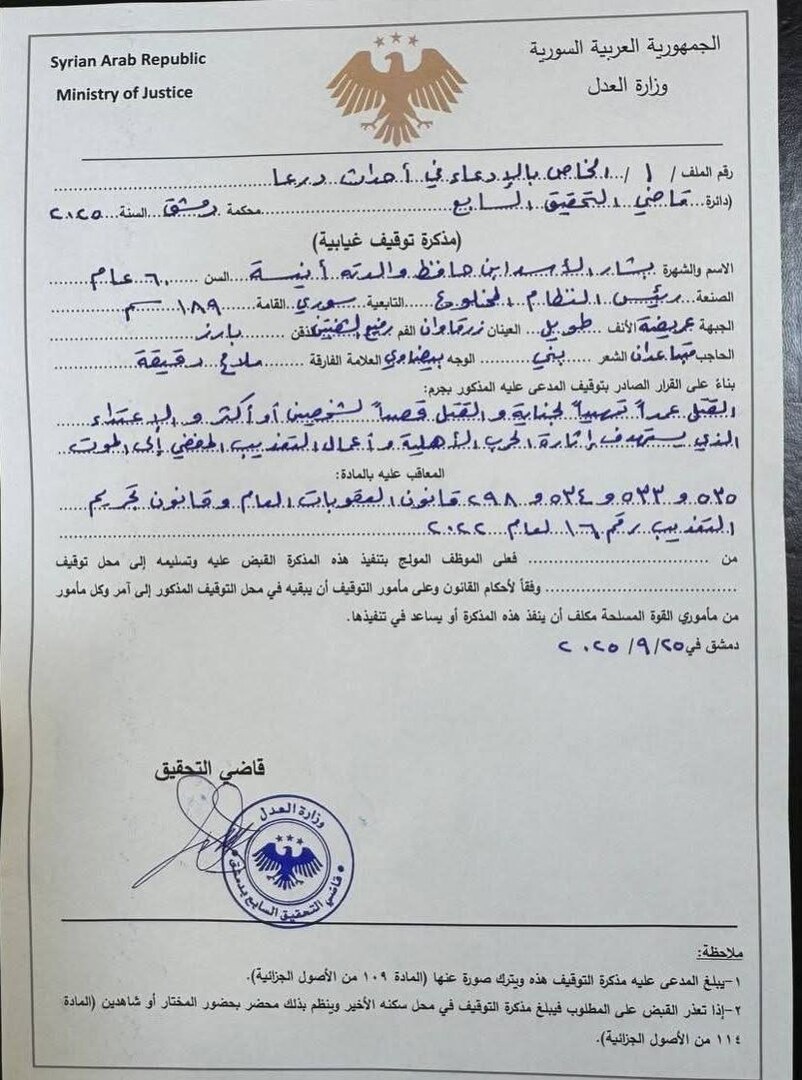 Syrian Arab Republic
Ministry of Justice
الجمهورية العربية السورية
وزارة العدل
رقم الملف / ١ / الخاص بالإدعاء في أحداث درعا
(دائرة... قاضي التحقيق السابع محكمة دمشق السنة ٢٠٢٥
(مذكرة توقيف غيابية)
الاسم والشهرة بشار الأسد ابن حافظ والدته أنيسة السن ٦٠ عام
الصنعة رئيس النظام المخلوع التابعية سوري القامة ١٨٩ سم
الجبهة عريضة الأنف طويل العينان زرقاوان الفم رفيع الشفتين الذقن بارز
الحاجب متباعدان الشعر بني الوجه بيضاوي العلامة الفارقة ملامح دقيقة
بناءً على القرار الصادر بتوقيف المدعى عليه المذكور بجرم:
القتل عمداً تمهيداً لجناية و القتل قصداً لشخصين أو أكثر و الإعتداء
الذي يستهدف إثارة الحرب الأهلية و أعمال التعذيب المفضي إلى الموت
المعاقب عليه بالمادة:
٥٣٥ و ٥٣٣ و ٥٣٤ و ٢٩٨ قانون العقوبات العام و قانون تجريم
التعذيب رقم ١٦ لعام ٢٠٢٢
من ........ فعلى الموظف المولج بتنفيذ هذه المذكرة القبض عليه وتسليمه إلى محل توقيف
........ وفقاً لأحكام القانون وعلى مأمور التوقيف أن يبقيه في محل التوقيف المذكور إلى آمر وكل مأمور
من مأموري القوة المسلحة مكلف أن ينفذ هذه المذكرة أو يساعد في تنفيذها.
دمشق في ٢٥/ ٩/ ٢٠٢٥
قاضي التحقيق
وزارة العدل
قاضي التحقيق السابع بدمشق
ملاحظة:
١-يبلغ المدعى عليه مذكرة التوقيف هذه ويترك صورة عنها (المادة ١٠٩ من الأصول الجزائية).
٢-إذا تعذر القبض على المطلوب فيبلغ مذكرة التوقيف في محل سكنه الأخير وينظم بذلك محضر بحضور المختار أو شاهدين (المادة
١١٤ من الأصول الجزائية).